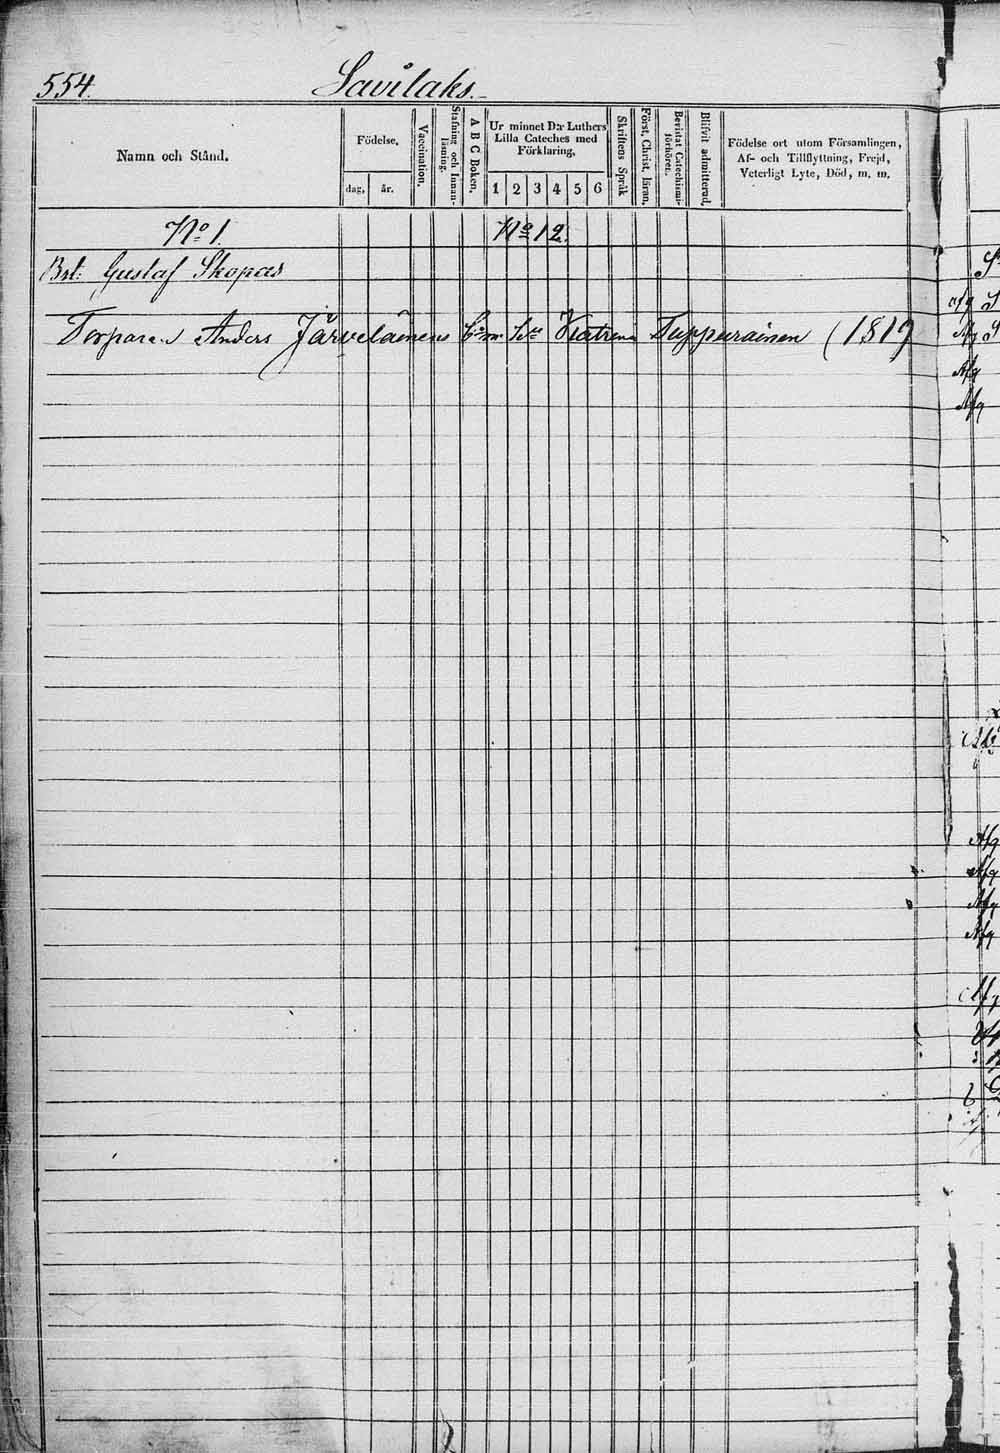 554.
Savilaks.
Namn och Stånd.
Födelse.
dag.
år.
Vaccination.
Stafning och Innanläsning.
A B C Boken.
Ur minnet D:r Luthers
Lilla Cateches med
Förklaring.
1 2 3 4 5 6
Skriftens Språk
Först. Christ. läran.
Bevistat Catechismiförhörer.
Blifvit admitterad.
Födelse ort utom Församlingen,
Af- och Tillflyttning, Frejd,
Veterligt Lyte, Död, m. m.
No 1.
No 12.
Bst: Gustaf Skopas
Torparen Anders Järveläinens Katrina Tuppurainen (1819
Afg
Afg
Afg
Afg
Afg
Afg
Afg